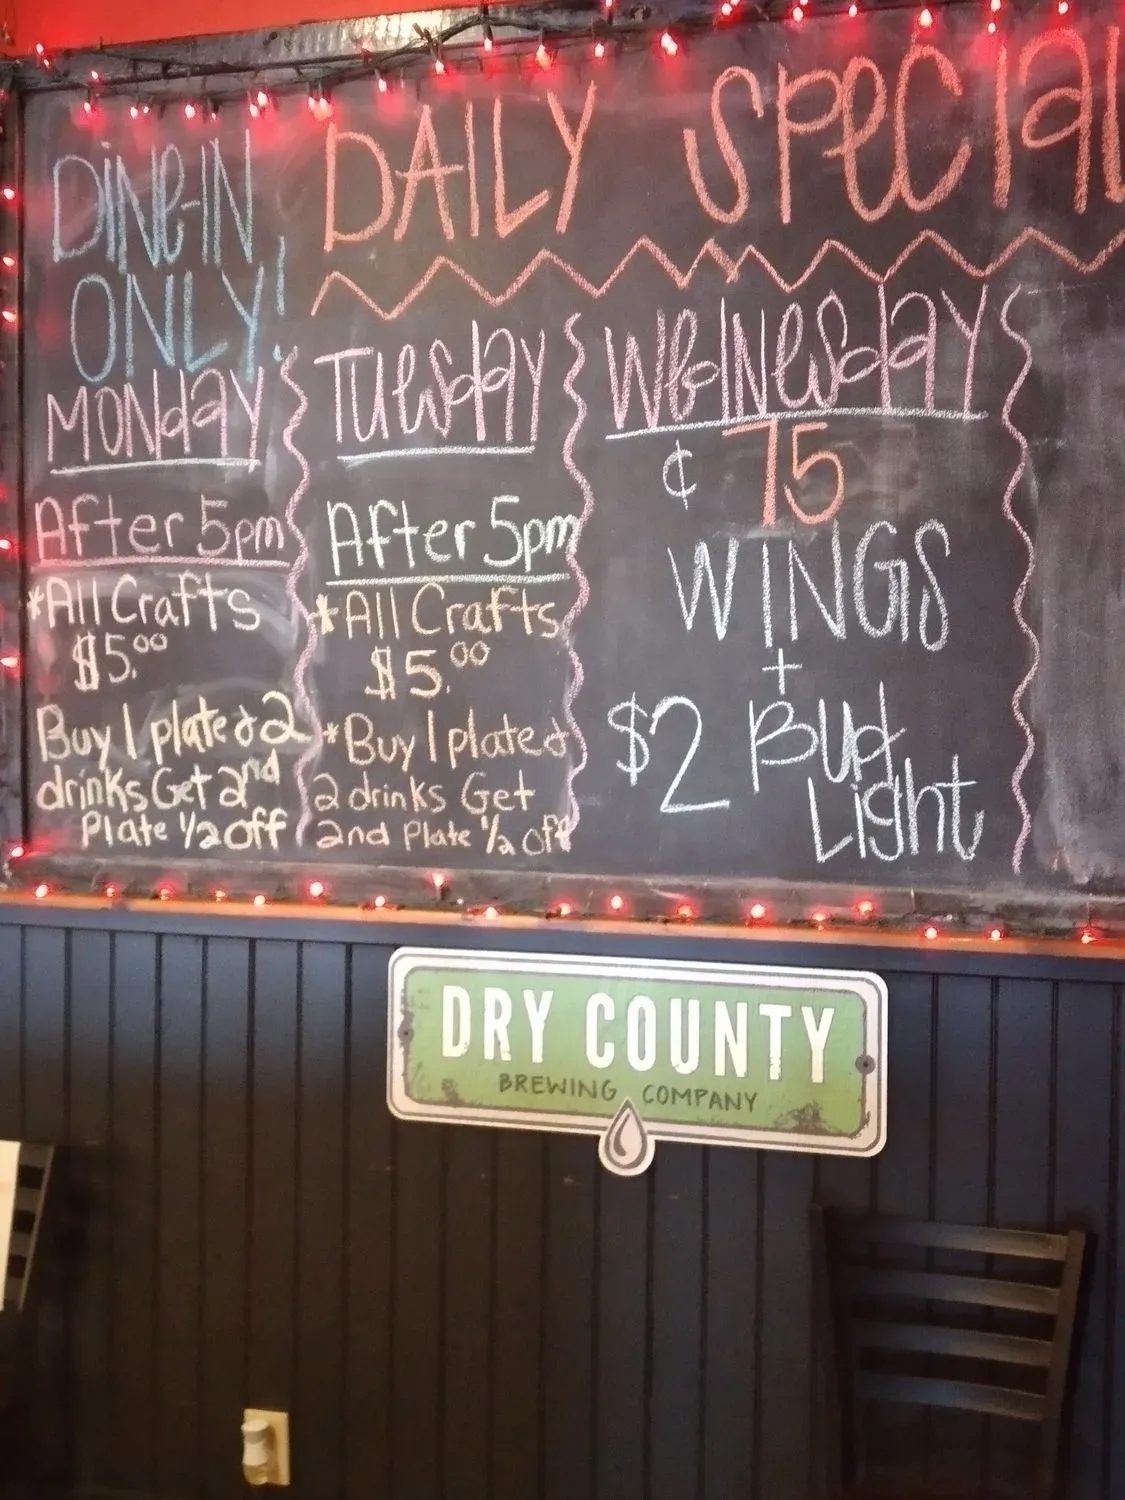 DINE-IN
ONLY!
DAILY SPECIAL
MONDAY
After 5pm
*All Crafts
$5.00
Buy 1 plate & 2
drinks Get 2nd
Plate 1/2 off
TUESDAY
After 5pm
*All Crafts
$5.00
*Buy 1 plate &
2 drinks Get
2nd Plate 1/2 off
WEDNESDAY
¢ 75
WINGS
+
$2 Bud
Light
DRY COUNTY
BREWING COMPANY